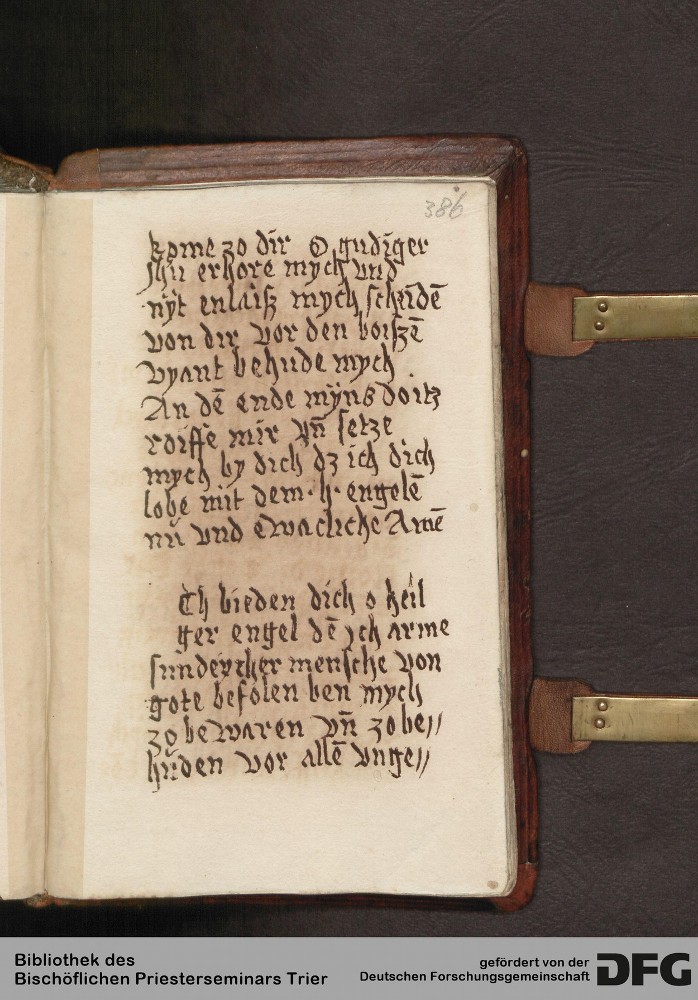 386
kome zo dir O gudiger
jhū erhore mych vnd
nyt enlaiß mych scheidē
von dir vor den boißē
vyant behude mych
An dē ende mÿns doitz
roiffe mir vn̄ setze
mych by dich dz ich dich
lobe mit dem · h · engelē
nū vnd ewacliche Amē
Ch bieden dich o heil
ger engel dē ich arme
sundercher mensche von
gote befolen ben mych
zo bewaren vn̄ zo be//
hüden vor allē vnge//
Bibliothek des
Bischöflichen Priesterseminars Trier
gefördert von der
Deutschen Forschungsgemeinschaft DFG